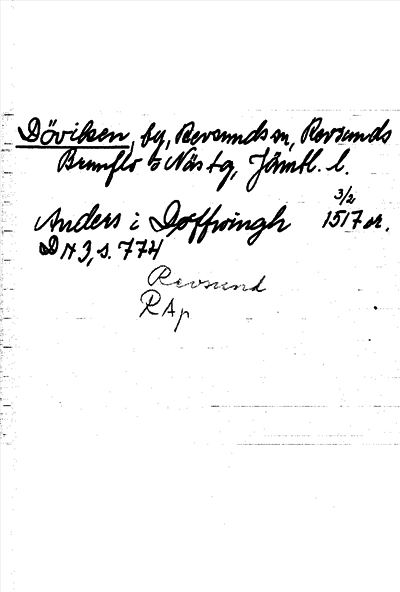 Döviken, by, Revsunds sn, Revsunds
Brunflo o Näs tg, Jämtl. l.
3/2
Anders i Døffwingh 1517 or.
DN 3, s. 774
Revsund
RAp